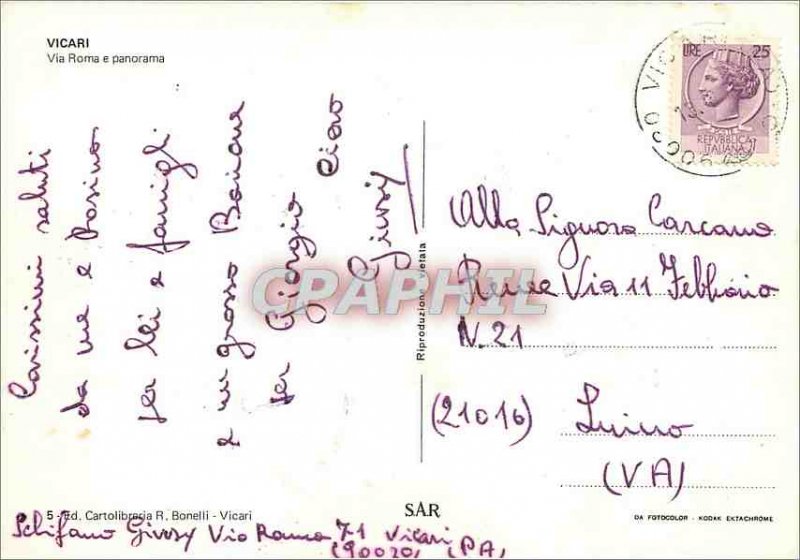 VICARI
Via Roma e panorama
Carissimi saluti
da me e Rosino
per lei e famigli
e un grosso Bacione
per Giorgio Ciao
Giusy
LIRE 25
POSTE
REPVBBLICA
ITALIANA
CPAPHIL
Riproduzione vietata
Alla Signora Carcano
Renea Via 11 Febbraio
N. 21
(21016) Luino
(VA)
5 - Ed. Cartolibreria R. Bonelli - Vicari
SAR
DA FOTOCOLOR - KODAK EKTACHROME
Schifano Giusy Via Roma 71 Vicari
(90020) (PA)